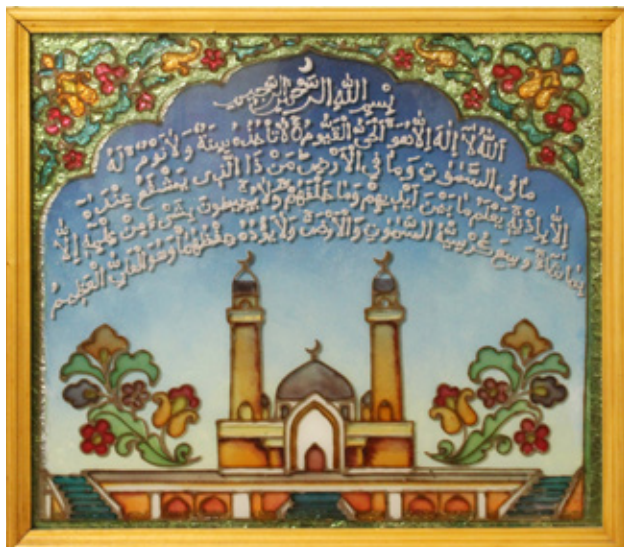 بِسْمِ اللهِ الرَّحْمٰنِ الرَّحِيْمِ
اَللهُ لَآ اِلٰهَ اِلَّا هُوَ الْحَيُّ الْقَيُّوْمُ لَا تَأْخُذُهٗ سِنَةٌ وَّلَا نَوْمٌ لَهٗ
مَا فِى السَّمٰوٰتِ وَمَا فِى الْاَرْضِ مَنْ ذَا الَّذِيْ يَشْفَعُ عِنْدَهٗ
اِلَّا بِاِذْنِهٖ يَعْلَمُ مَا بَيْنَ اَيْدِيْهِمْ وَمَا خَلْفَهُمْ وَلَا يُحِيْطُوْنَ بِشَيْءٍ مِّنْ عِلْمِهٖٓ اِلَّا
بِمَا شَآءَ وَسِعَ كُرْسِيُّهُ السَّمٰوٰتِ وَالْاَرْضَ وَلَا يَئُوْدُهٗ حِفْظُهُمَا وَهُوَ الْعَلِيُّ الْعَظِيْمُ